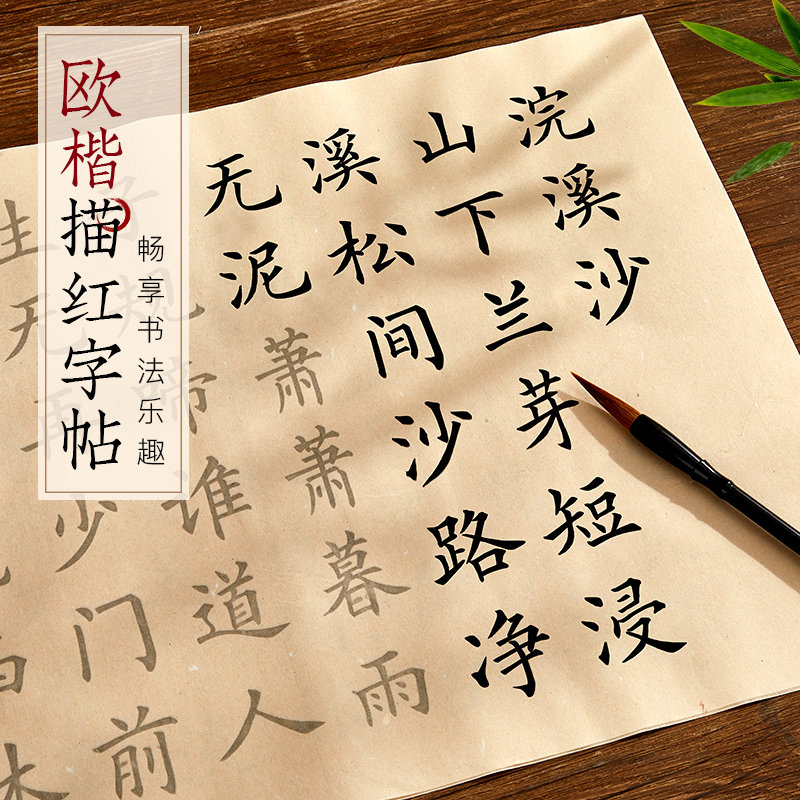 欧楷描红字帖
畅享书法乐趣
浣溪沙
山下兰芽短浸
溪松间沙路净
无泥萧萧暮雨
子规啼谁道人
生无再少门前